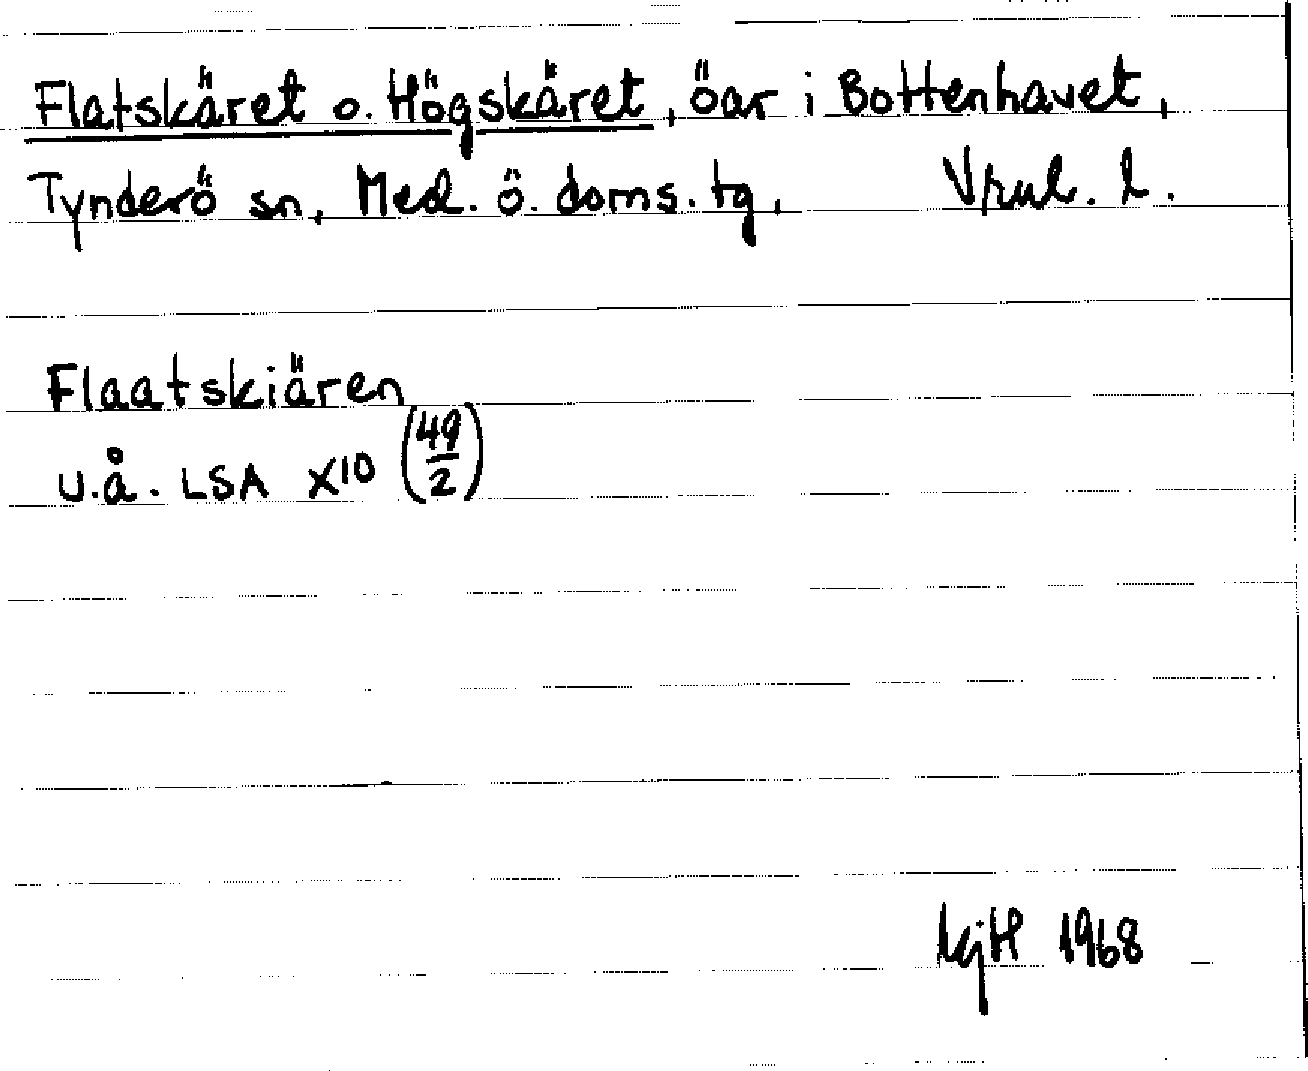 Flatskäret o. Högskäret, öar i Bottenhavet,
Tynderö sn, Med. ö. doms. tg, Vrnl. l.
Flaatskiären
u.å. LSA X10 (49/2)
kjH 1968